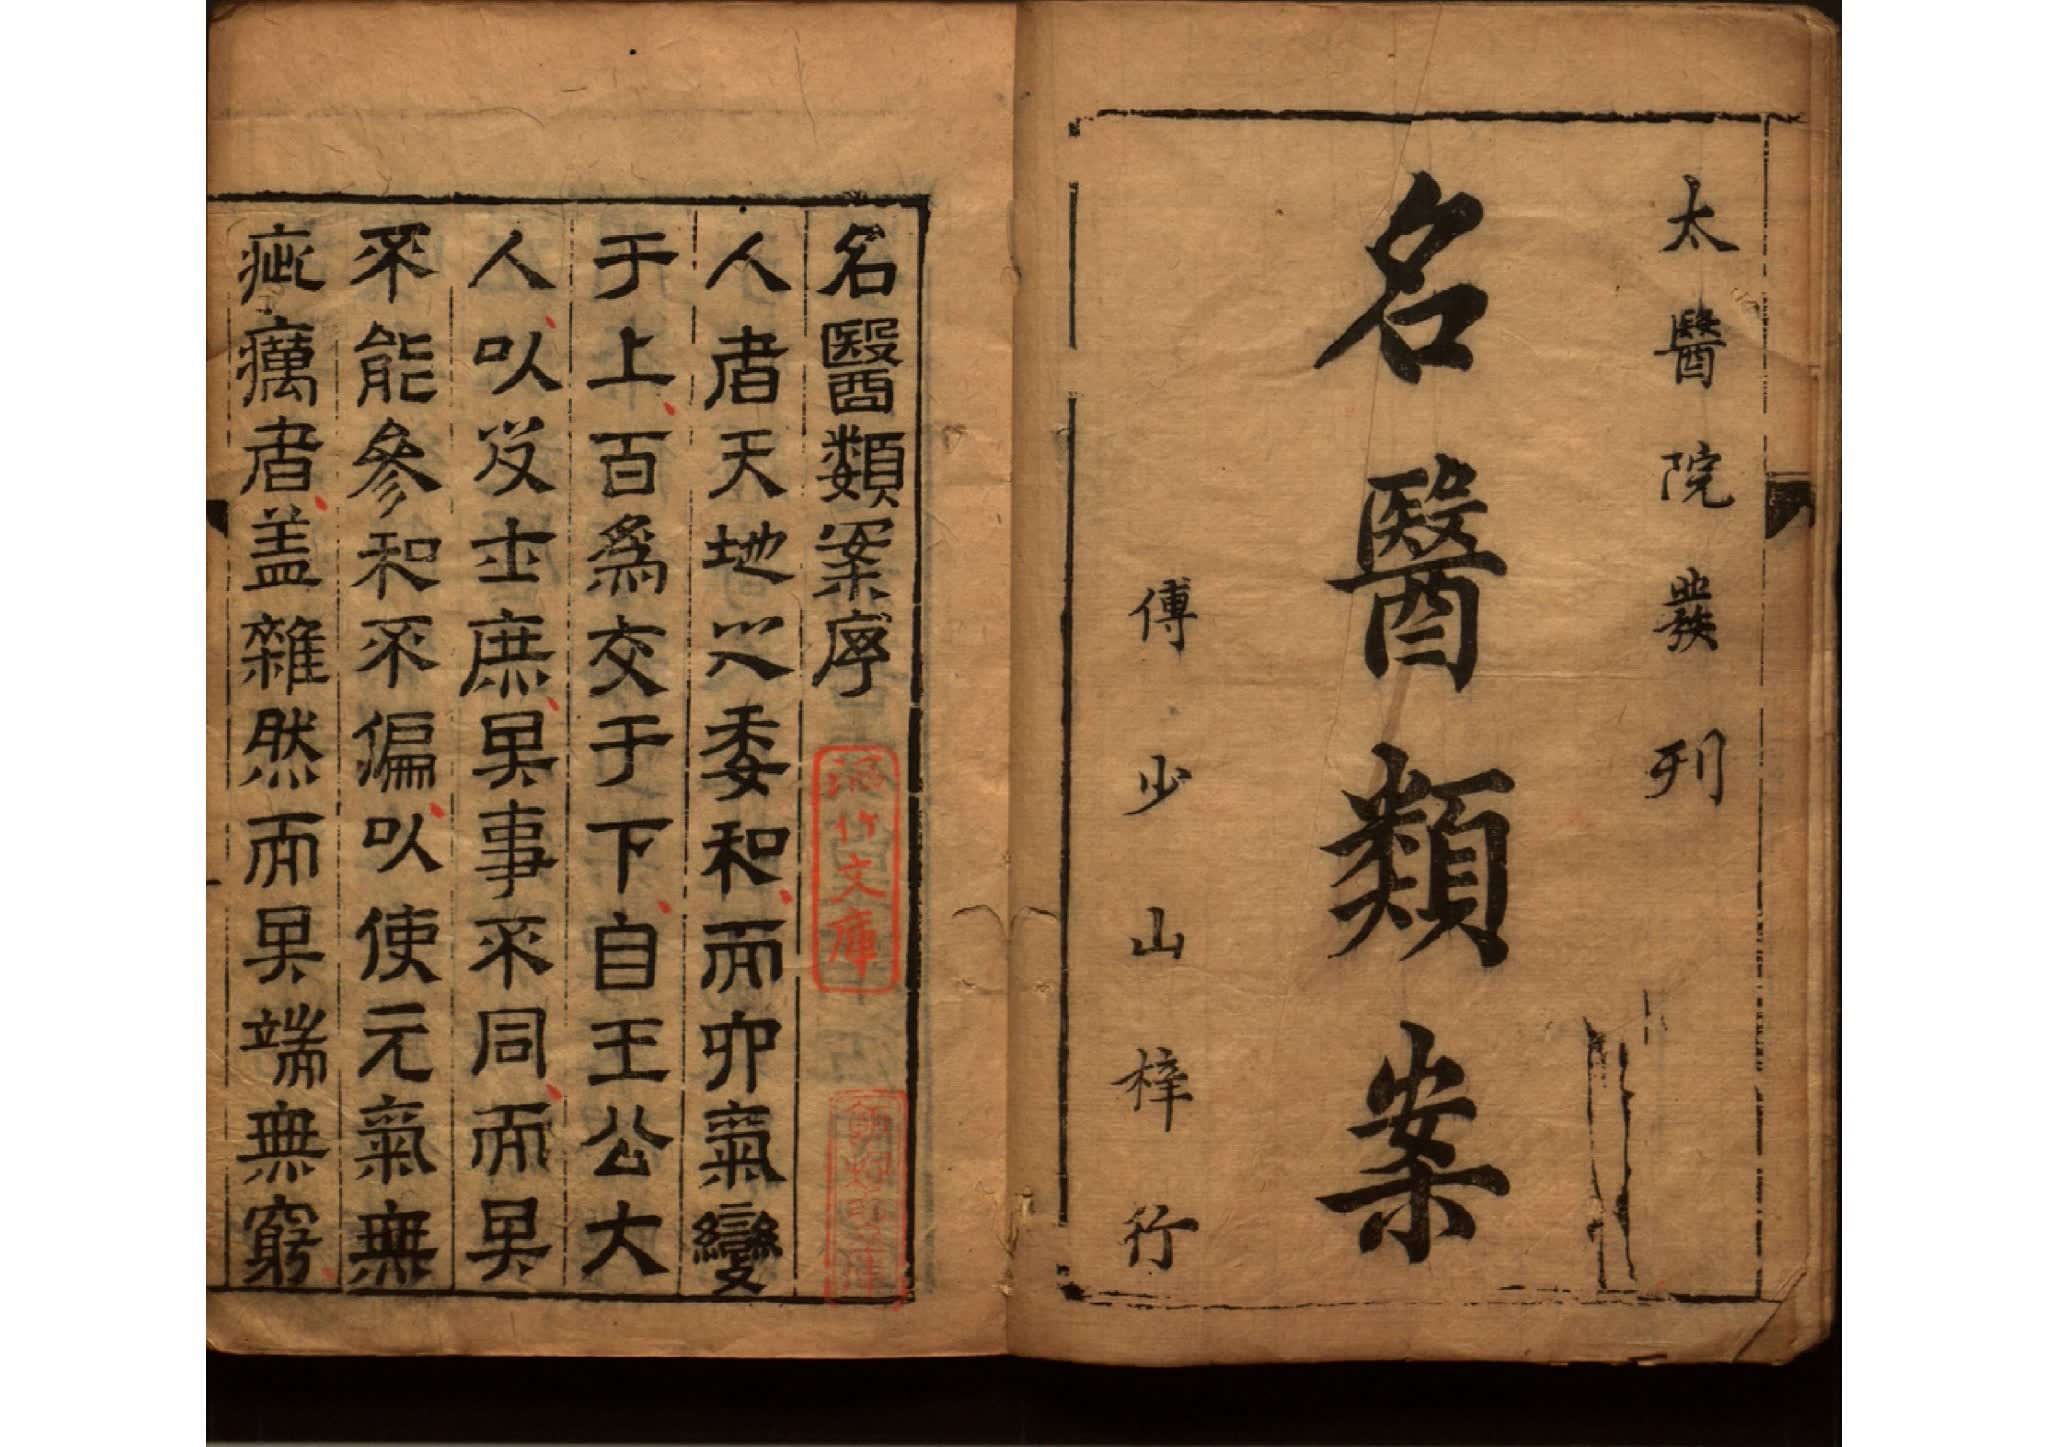 太醫院叢刊
名醫類案
傅少山梓行
名醫類案序
人者天地之委和而卯氣變
于上百爲交于下自王公大
人以及士庶其事不同而其
不能參和不偏以使元氣無
疵癘者盖雜然而其端無窮
竹文庫